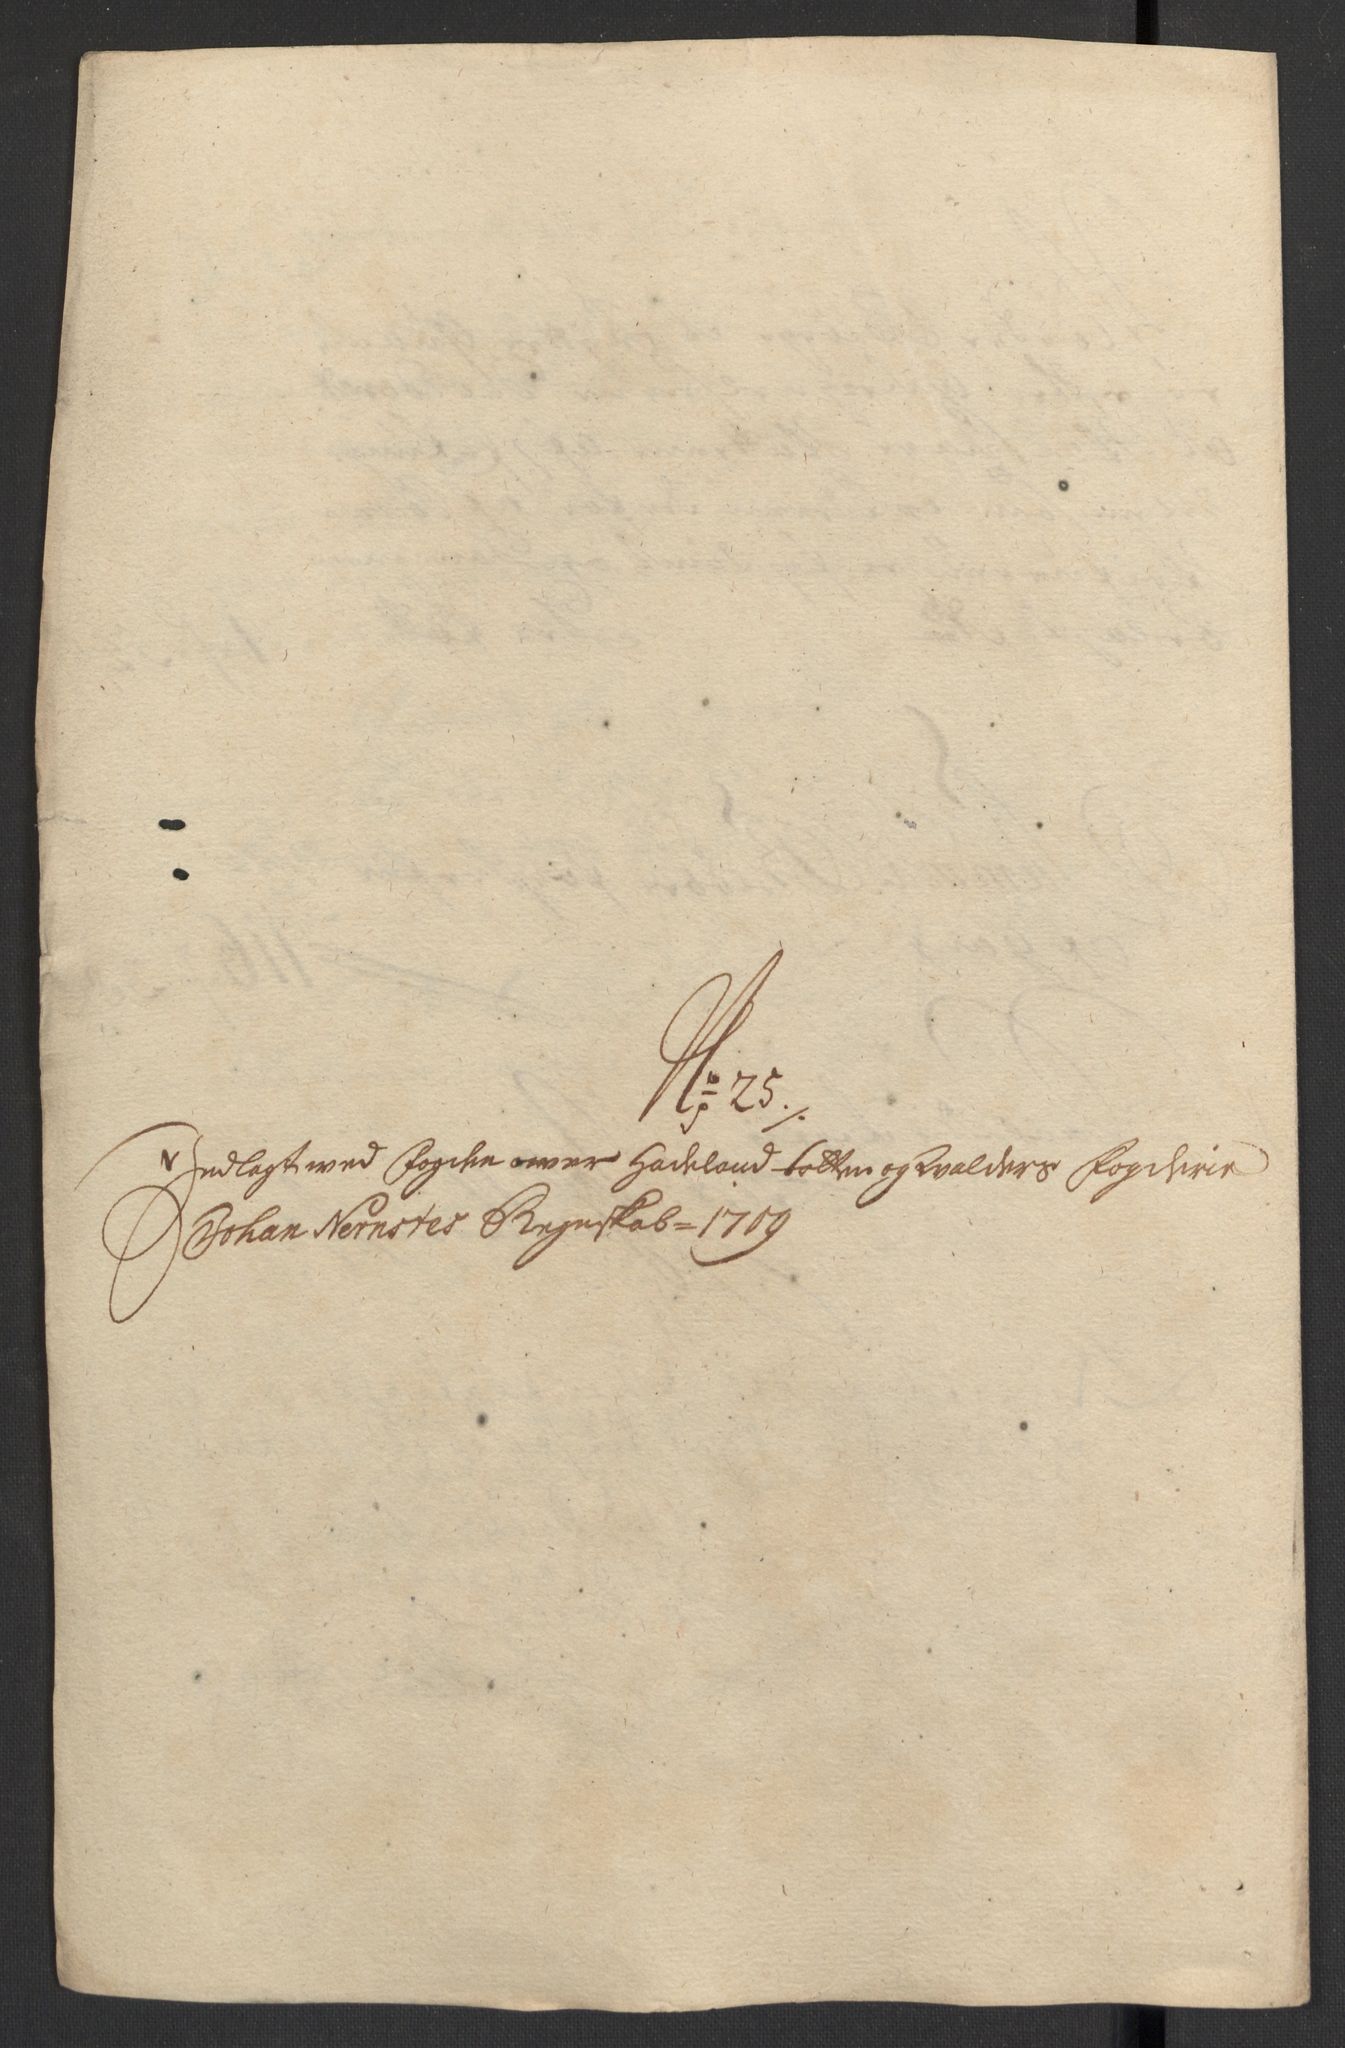 No 25 ./.
Indlagt ved Fogden over Hadeland Totten og Walders Fogderie
Johan Nernstes Regnskab = 1709